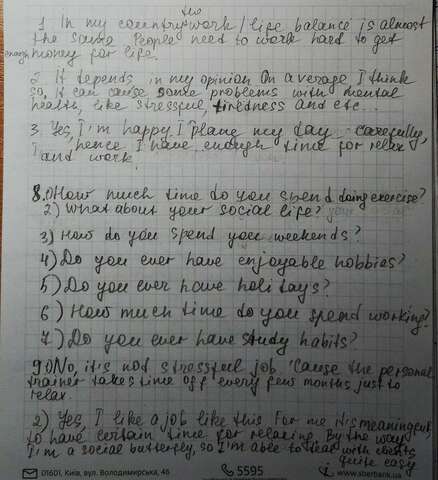 1 In my country work / life balance is almost
the same. People need to work hard to get
enough money for life.
2 It depends in my opinion On average I think
so, It can cause some problems with mental
health, like stressful, tiredness and etc...
3. Yes, I'm happy, I plane my day carefully,
hence I have enough time for relax
and work.
8.1) How much time do you spend doing exercise?
2) What about your social life?
3) How do you spend your weekends?
4) Do you ever have enjoyable hobbies?
5) Do you ever have holidays?
6) How much time do you spend working?
7) Do you ever have study habits?
9 1) No, it's not stressful job. 'Cause the personal
trainer takes time off every few months just to
relax.
2) Yes, I like a job like this For me it is meaningful
to have certain time for relaxing. By the way
I'm a social butterfly, so I'm able to deal with clients
quite easy
01601, Київ, вул. Володимирська, 46 5595 www.sberbank.ua